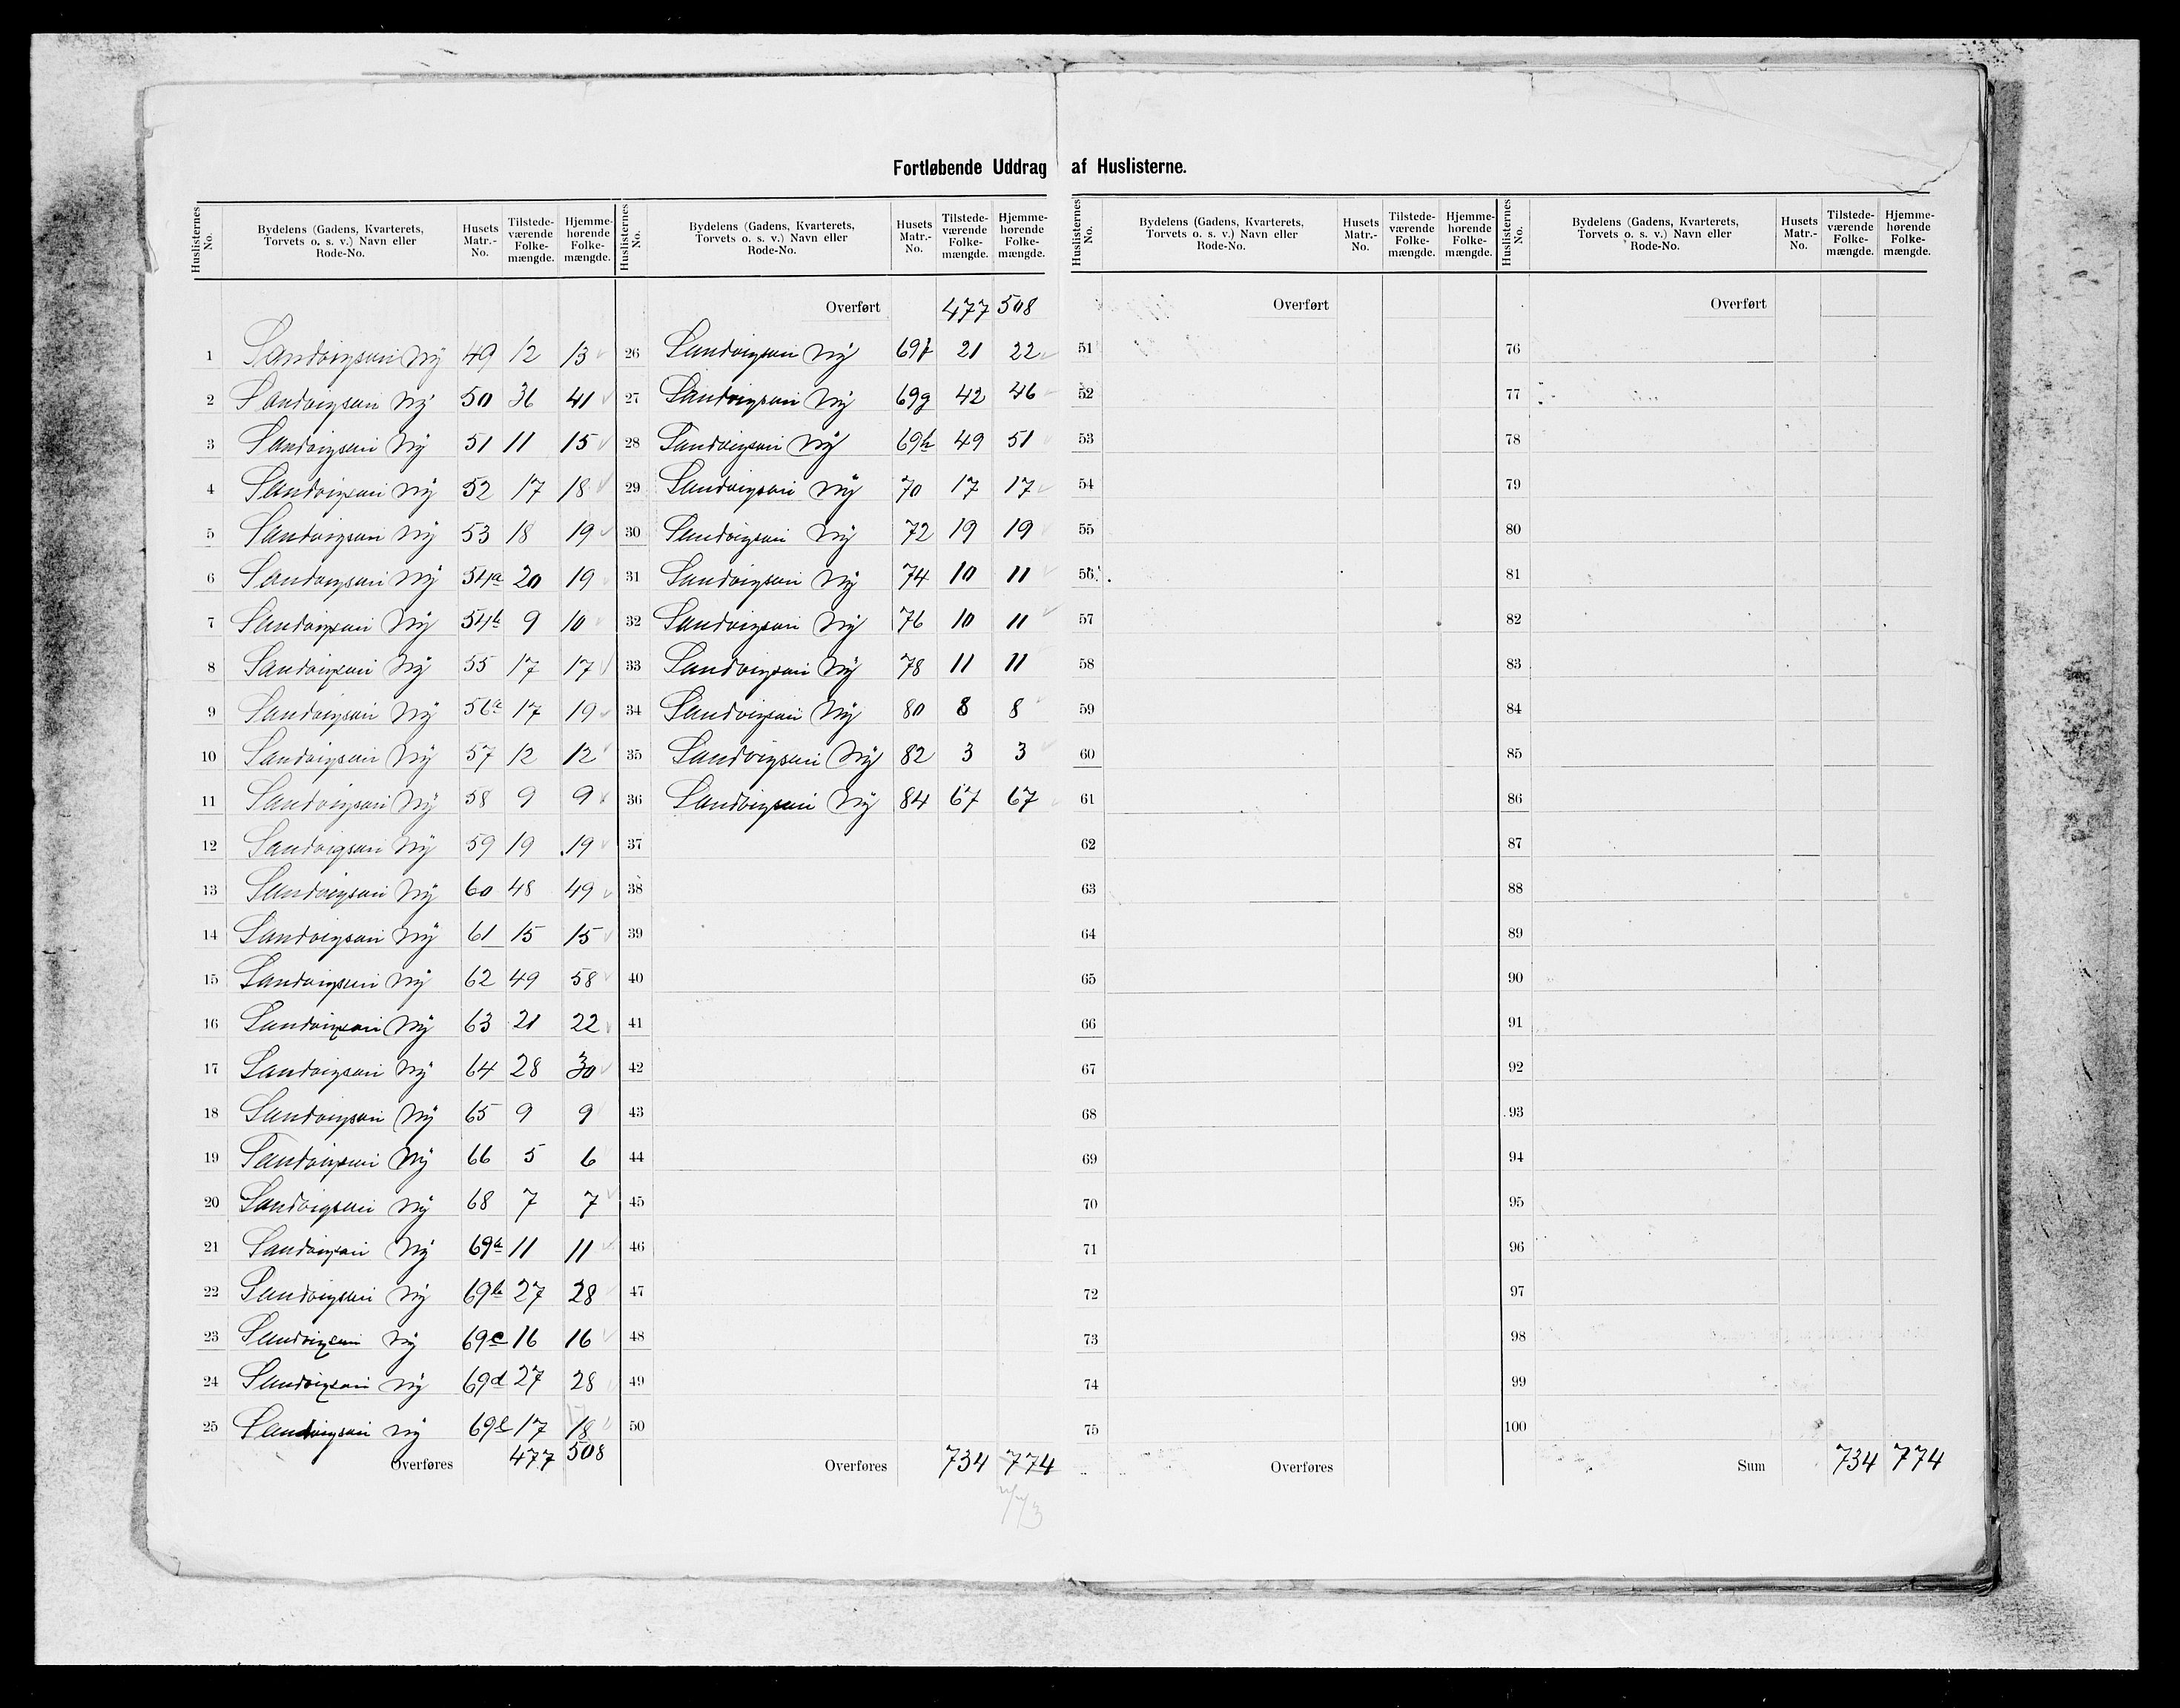 Fortløbende Uddrag af Huslisterne.
Huslisternes No. | Bydelens (Gadens, Kvarterets, Torvets o. s. v.) Navn eller Rode-No. | Husets Matr.-No. | Tilstedeværende Folkemængde. | Hjemmehørende Folkemængde.
1 Sandvigsvei Ny 49 12 13
2 Sandvigsvei Ny 50 36 41
3 Sandvigsvei Ny 51 11 15
4 Sandvigsvei Ny 52 17 18
5 Sandvigsvei Ny 53 18 19
6 Sandvigsvei Ny 54a 20 19
7 Sandvigsvei Ny 54b 9 10
8 Sandvigsvei Ny 55 17 17
9 Sandvigsvei Ny 56a 17 19
10 Sandvigsvei Ny 57 12 12
11 Sandvigsvei Ny 58 9 9
12 Sandvigsvei Ny 59 19 19
13 Sandvigsvei Ny 60 48 49
14 Sandvigsvei Ny 61 15 15
15 Sandvigsvei Ny 62 49 58
16 Sandvigsvei Ny 63 21 22
17 Sandvigsvei Ny 64 28 30
18 Sandvigsvei Ny 65 9 9
19 Sandvigsvei Ny 66 5 6
20 Sandvigsvei Ny 68 7 7
21 Sandvigsvei Ny 69a 11 11
22 Sandvigsvei Ny 69b 27 28
23 Sandvigsvei Ny 69c 16 16
24 Sandvigsvei Ny 69d 27 28
25 Sandvigsvei Ny 69e 17 18
Overføres 477 508
Huslisternes No. | Bydelens (Gadens, Kvarterets, Torvets o. s. v.) Navn eller Rode-No. | Husets Matr.-No. | Tilstedeværende Folkemængde. | Hjemmehørende Folkemængde.
Overført 477 508
26 Sandvigsvei Ny 69f 21 22
27 Sandvigsvei Ny 69g 42 46
28 Sandvigsvei Ny 69h 49 51
29 Sandvigsvei Ny 70 17 17
30 Sandvigsvei Ny 72 19 19
31 Sandvigsvei Ny 74 10 11
32 Sandvigsvei Ny 76 10 11
33 Sandvigsvei Ny 78 11 11
34 Sandvigsvei Ny 80 8 8
35 Sandvigsvei Ny 82 3 3
36 Sandvigsvei Ny 84 67 67
37
38
39
40
41
42
43
44
45
46
47
48
49
50
Overføres 734 774
773
Huslisternes No. | Bydelens (Gadens, Kvarterets, Torvets o. s. v.) Navn eller Rode-No. | Husets Matr.-No. | Tilstedeværende Folkemængde. | Hjemmehørende Folkemængde.
Overført
51
52
53
54
55
56
57
58
59
60
61
62
63
64
65
66
67
68
69
70
71
72
73
74
75
Overføres
Huslisternes No. | Bydelens (Gadens, Kvarterets, Torvets o. s. v.) Navn eller Rode-No. | Husets Matr.-No. | Tilstedeværende Folkemængde. | Hjemmehørende Folkemængde.
Overført
76
77
78
79
80
81
82
83
84
85
86
87
88
89
90
91
92
93
94
95
96
97
98
99
100
Sum 734 774